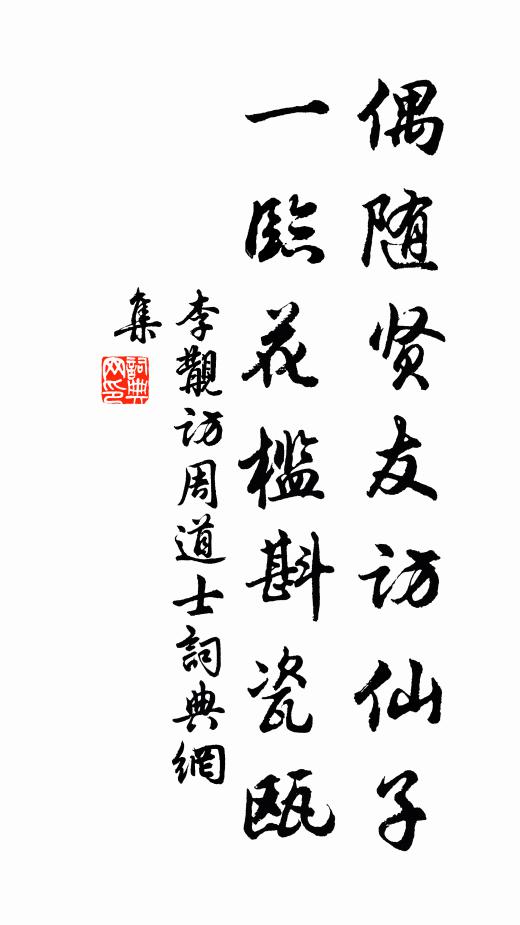 偶随贤友访仙子
一临花槛斟瓷瓯
李觏访周道士詞典網
集
詞典网印